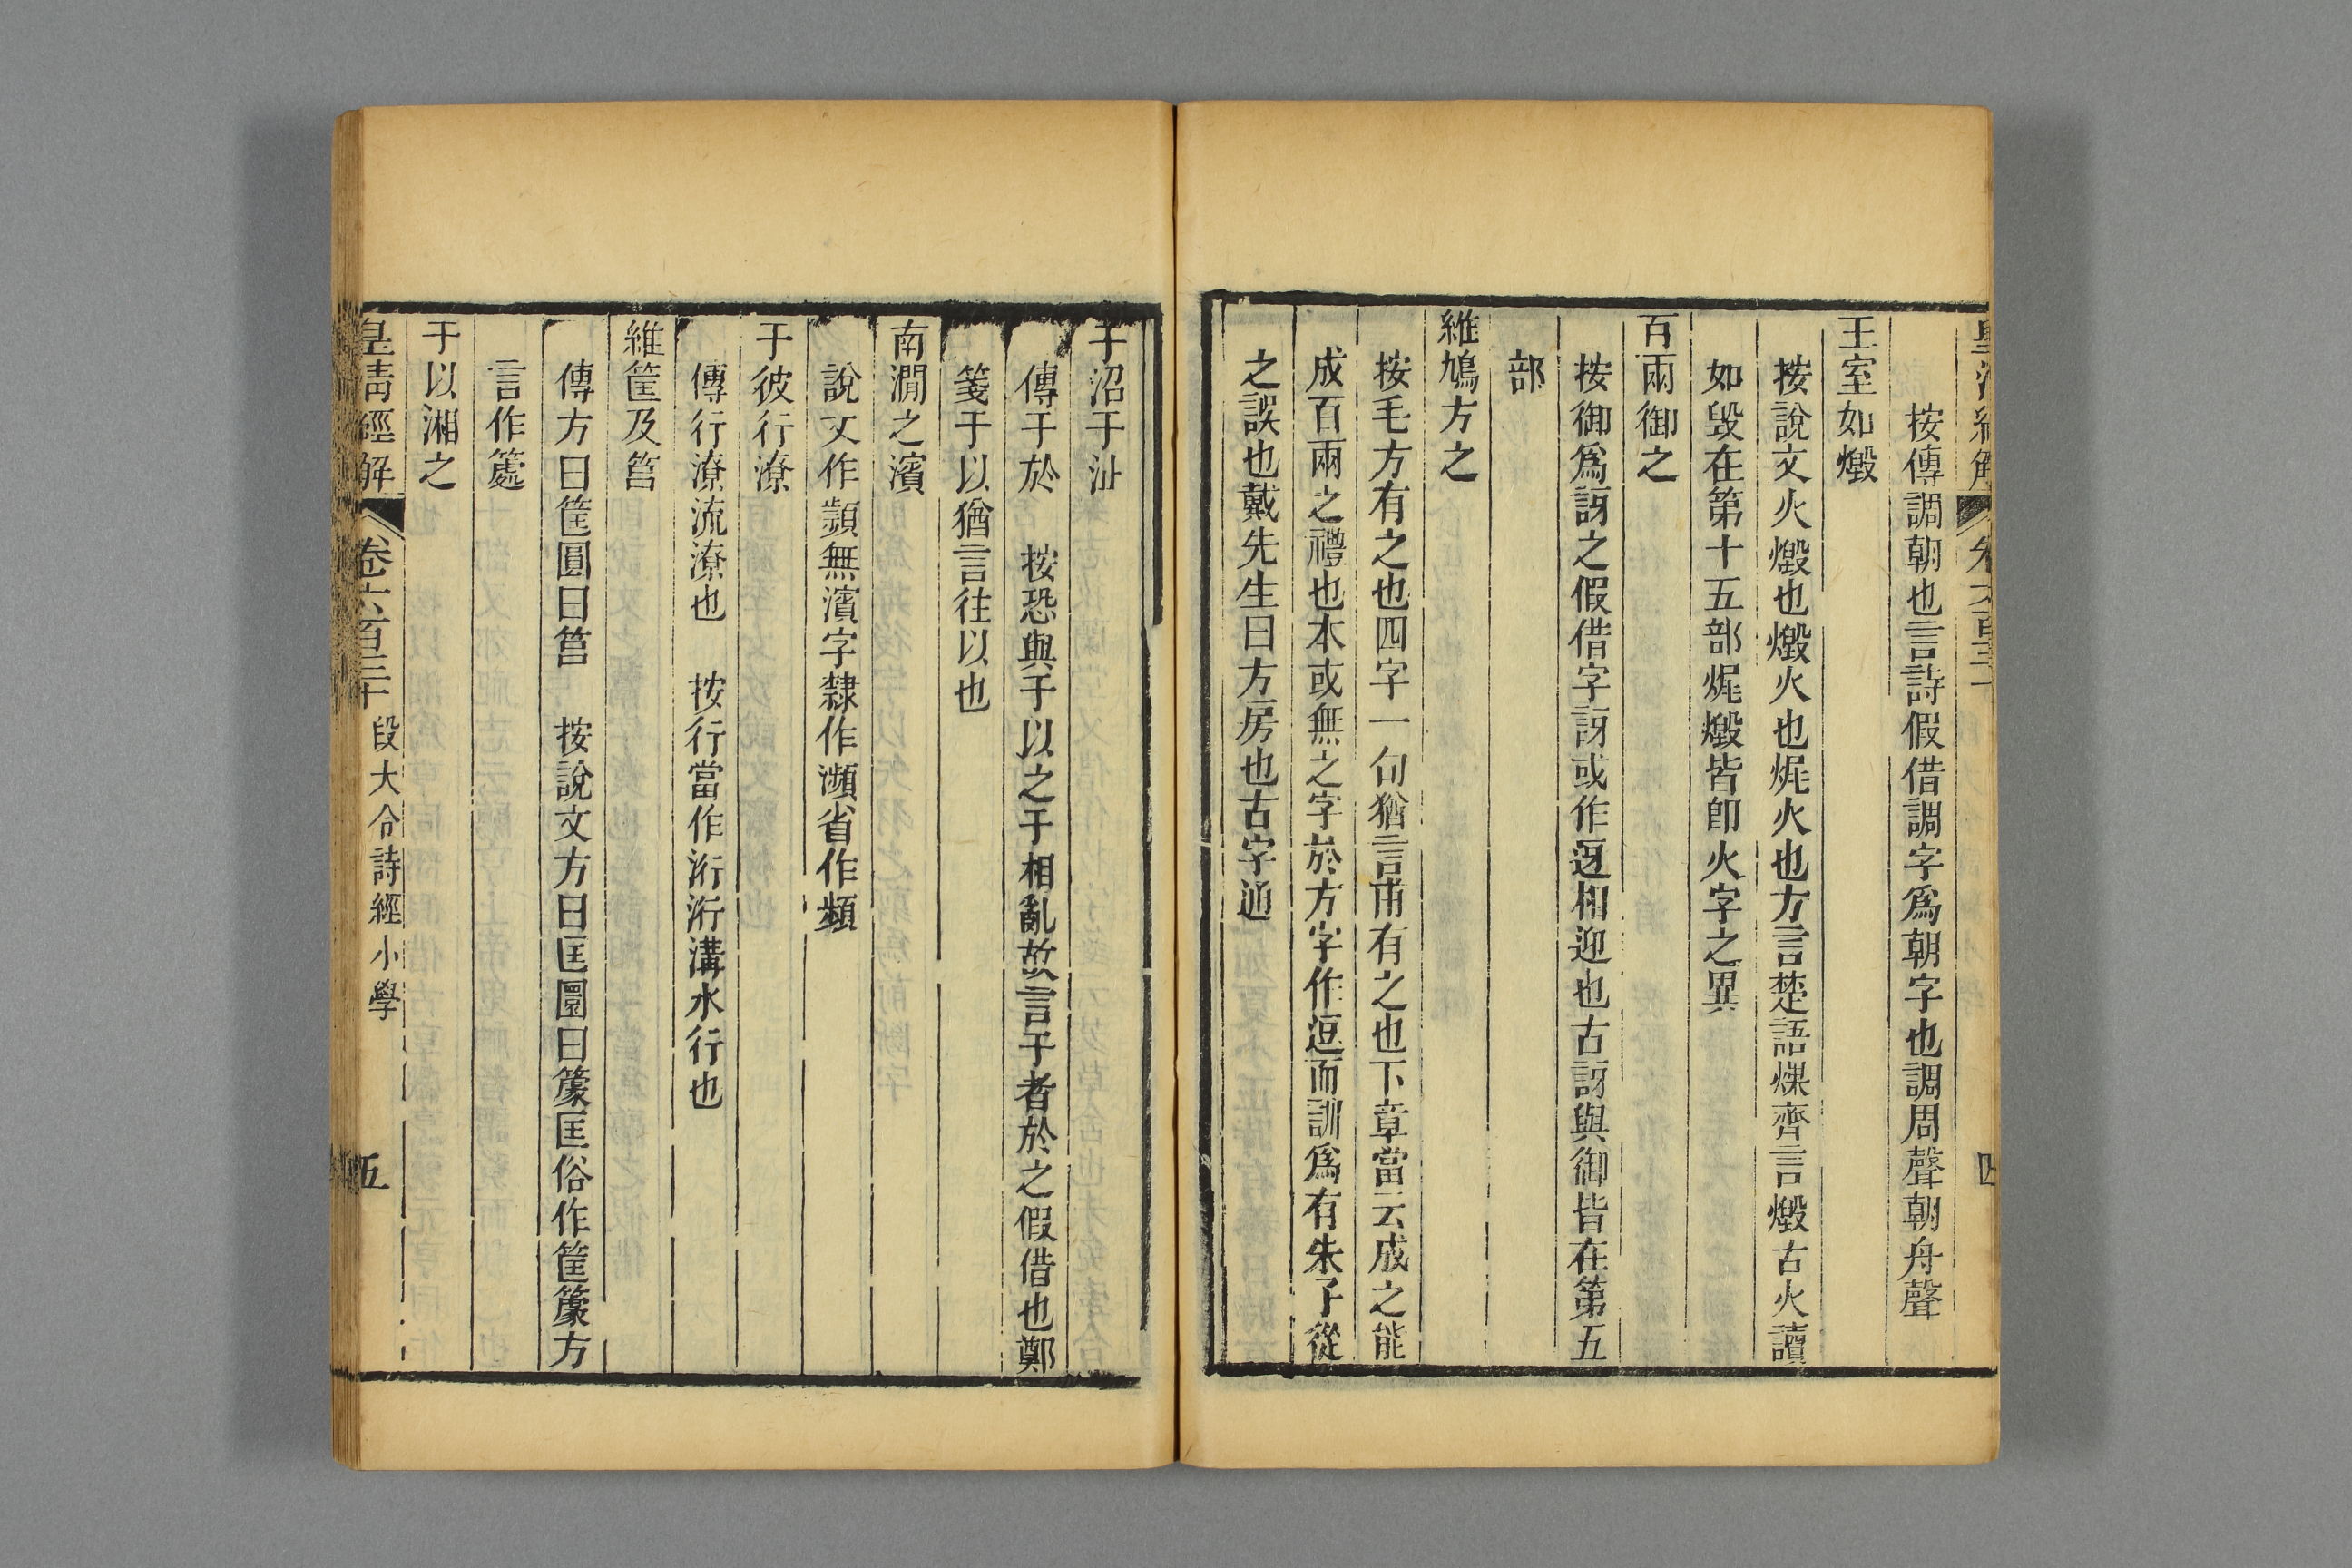 皇清經解 卷六百三十 四
按傳調朝也言詩假借調字爲朝字也調周聲朝舟聲
王室如燬
按說文火燬也燬火也焜火也方言楚語㷄齊言燬古火讀
如毀在第十五部焜燬皆卽火字之異
百兩御之
按御爲訝之假借字訝或作迓相迎也古訝與御皆在第五
部
維鳩方之
按毛方有之也四字一句猶言甫有之也下章當云成之能
成百兩之禮也本或無之字於方字作逗而訓爲有朱子從
之誤也戴先生曰方房也古字通
于沼于沚
傳于於 按恐與于以之于相亂故言于者於之假借也鄭
箋于以猶言往以也
南澗之濱
說文作頻無濱字隸作瀕省作頻
于彼行潦
傳行潦流潦也 按行當作洐洐溝水行也
維筐及筥
傳方曰筐圓曰筥 按說文方曰匡圜曰篆匡俗作筐篆方
言作籧
于以湘之
皇淸經解 卷六百三十 段大令詩經小學 五